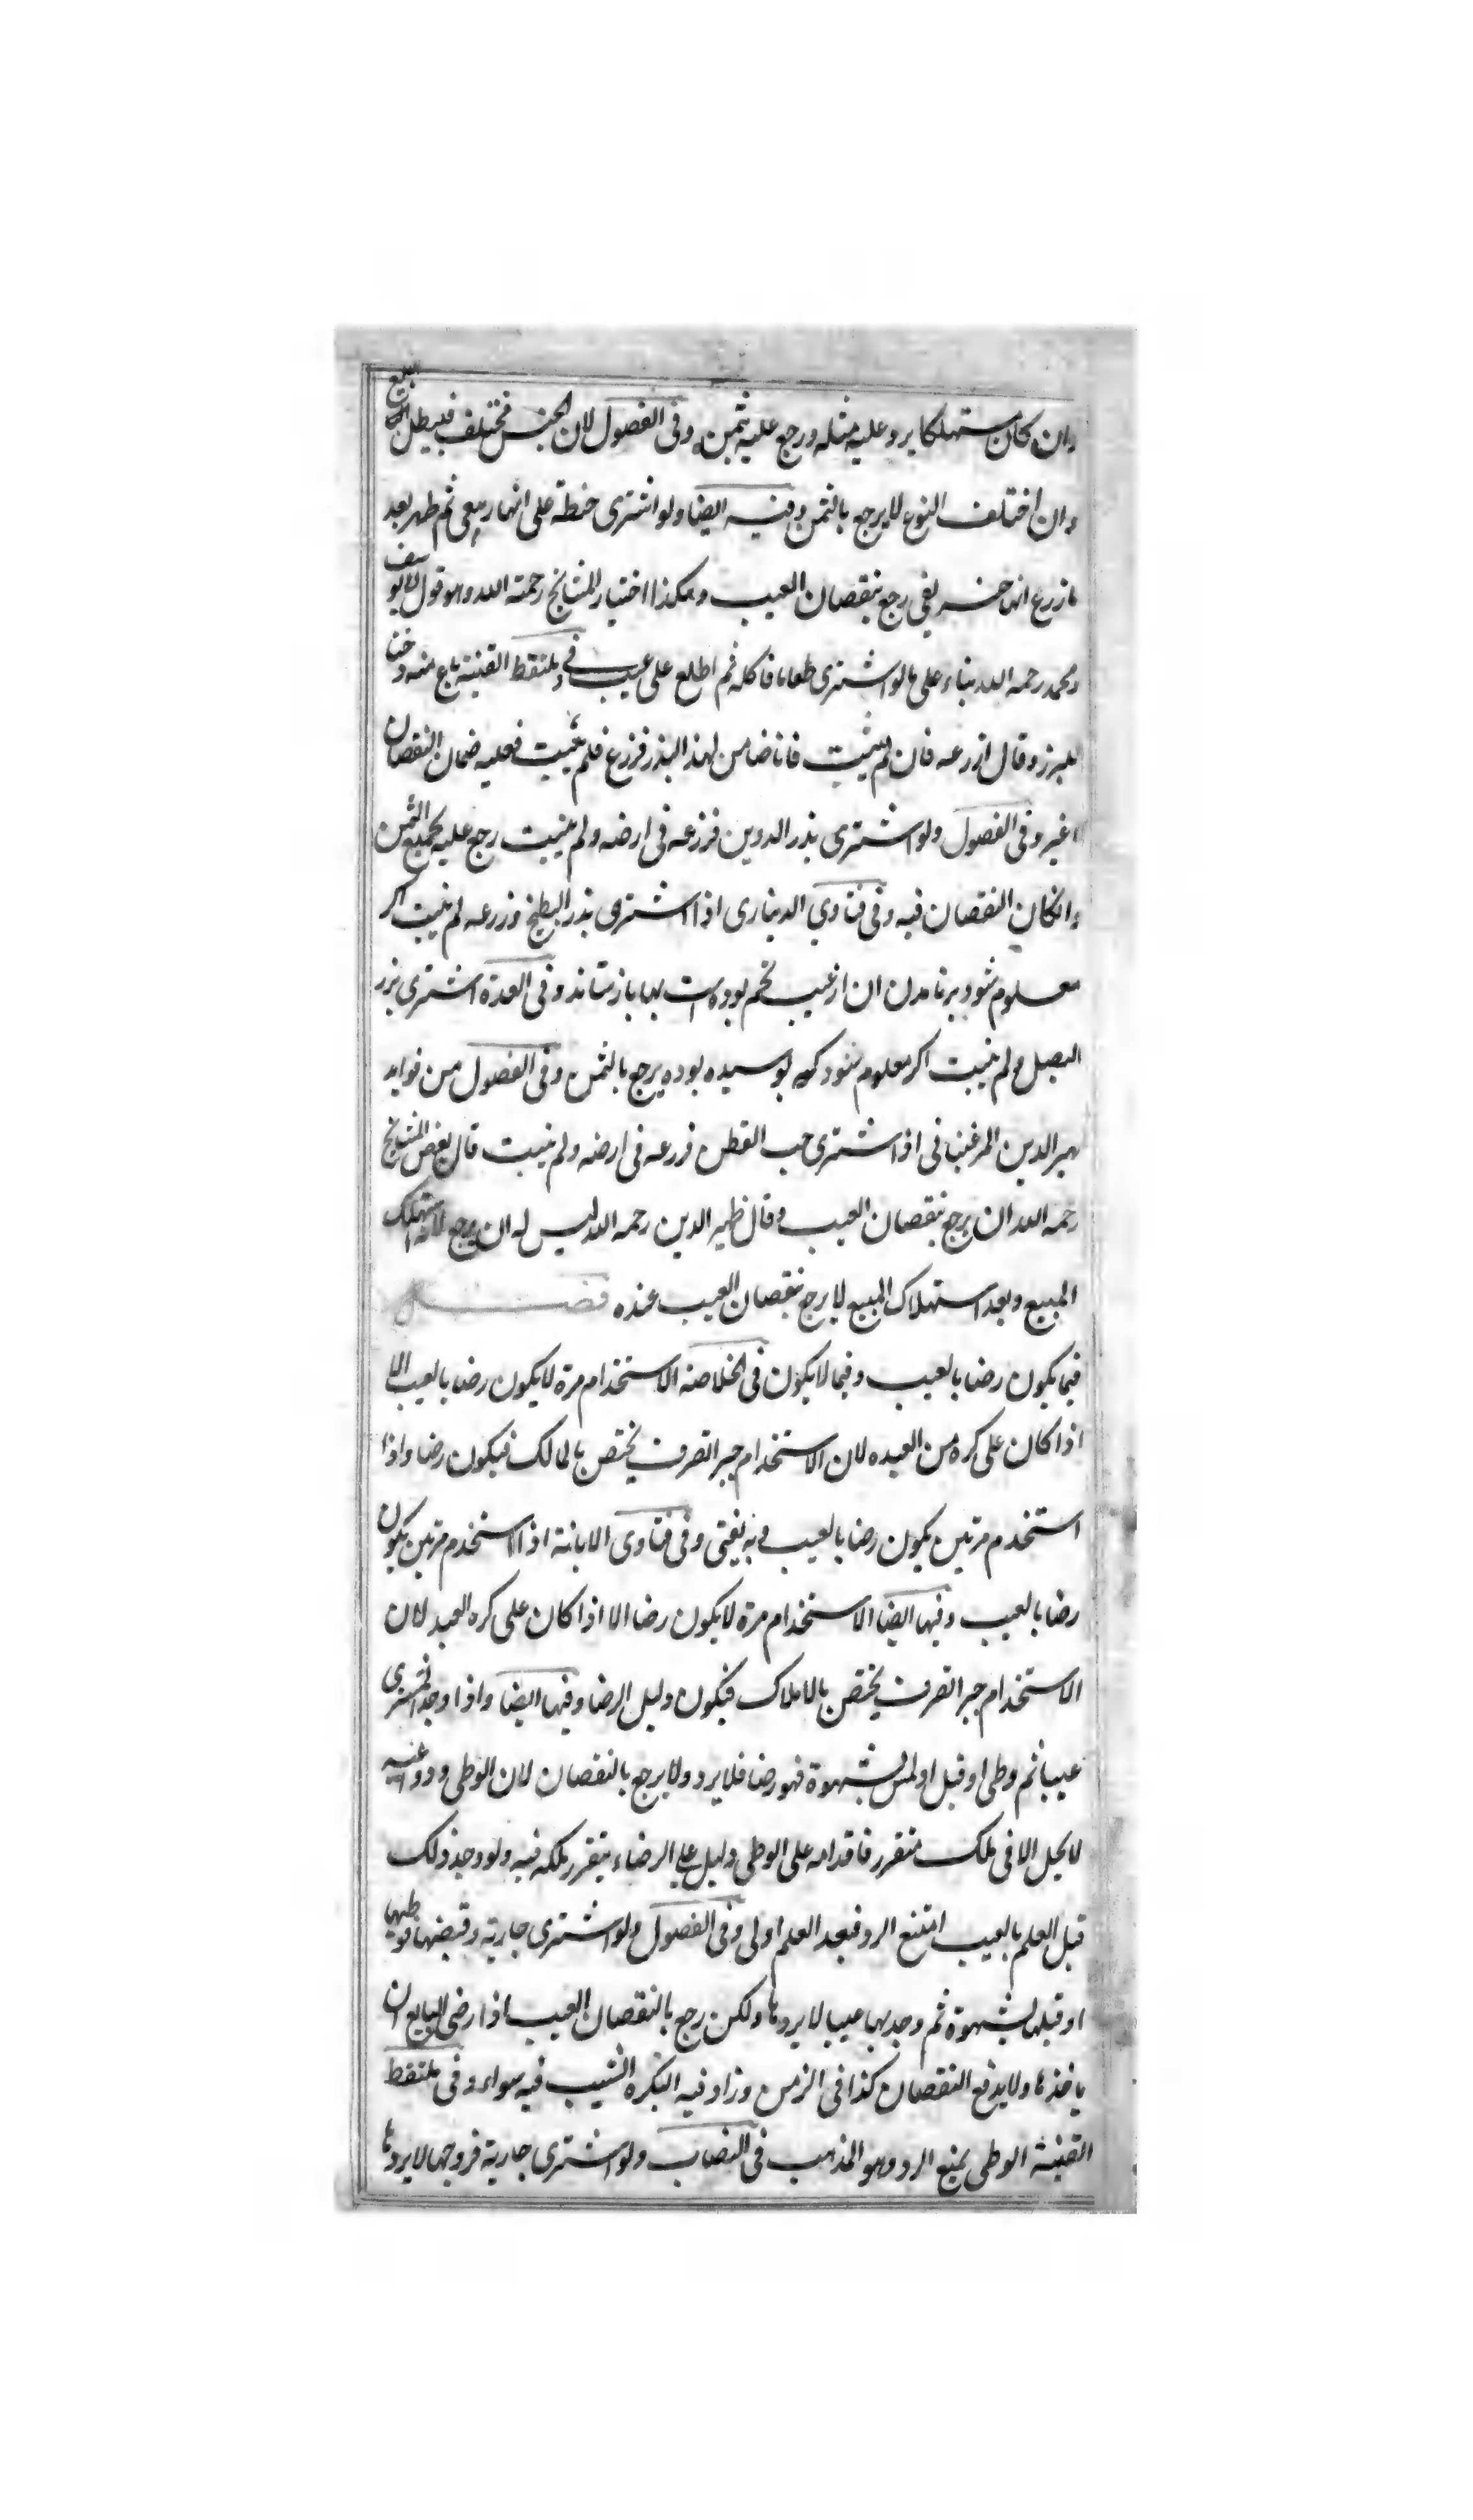 وان كان مستهلكا يرد عليه مثله ورجع عليه بثمن وفى الفصول لان الجنس مختلف فيبطل البيع
وان اختلف النوع لا يرجع بالثمن وفيه ايضا ولو اشترى حنطة على انها ربيعى ثم ظهر بعد
ما زرع انها خريفى رجع بنقصان العيب وهكذا اختيار المشايخ رحمة الله وهو قول لابو يوسف
ومحمد رحمه الله بناء على ما لو اشترى طعاما فاكله ثم اطلع على عيب فى وملتقط القنية باع منه
وقال ازرعه فان لم ينبت فانا ضامن لهذا البذر فزرع فلم ينبت فعليه ضمان النقصان
لا غير وفى الفصول ولو اشترى بذر فزرعه فى ارضه ولم ينبت رجع عليه بجميع الثمن
وانكان النقصان فيه وفى فتاوي الدينارى اذا اشترى بذر البطيخ وزرعه لم ينبت اكر
معلوم شود برنامدن ان از عيب تخم بوده است بها باز ستاند وفى العدة اشترى بزر
البصل ولم ينبت اكر معلوم شود كه بوسيده بوده يرجع بالثمن وفى الفصول من فوايد
ظهير الدين المرغينانى اذا اشترى حب القطن فزرعه فى ارضه ولم ينبت قال بعض المشايخ
رحمه الله ان يرجع بنقصان العيب وقال ظهير الدين رحمه الله ليس له ان يرجع لانه استهلك
المبيع وبعد استهلاك المبيع لا يرجع بنقصان العيب عنده فصل
فيما يكون رضا بالعيب وفيما لا يكون فى الخلاصة الاستخدام مرة لا يكون رضا بالعيب الا
اذا كان على كره من العبده لان الاستخدام جبرا تصرف يختص بالمالك فيكون رضا واذا
استخدم مرتين يكون رضا بالعيب وبه يفتى وفى فتاوى الابانة اذا استخدم مرتين يكون
رضا بالعيب وفيها ايضا الاستخدام مرة لا يكون رضا الا اذا كان على كره العبد لان
الاستخدام جبرا تصرف يختص بالاملاك فيكون دليل الرضا وفيها ايضا واذا وجد المشترى
عيبا ثم وطى او قبل او لمس بشهوة فهو رضا فلا يرد ولا يرجع بالنقصان لان الوطى ودواعيه
لا يحل الا فى ملك متقرر فاقدامه على الوطى دليل على الرضاء بتقرر ملكه فيه ولو وجد ذلك
قبل العلم بالعيب امتنع الرد فبعد العلم اولى وفى الفصول ولو اشترى جارية وقبضها فوطيها
او قبلها بشهوة ثم وجد بها عيبا لا يردها ولكن رجع بالنقصان العيب اذا رضى البايع ان
ياخذها ولا يدفع النقصان كذا فى الزمن وزاد فيه البكر والثيب فيه سواء وفى ملتقط
القنية الوطى يمنع الرد وهو المذهب فى النصاب ولو اشترى جارية فزوجها لا يردها